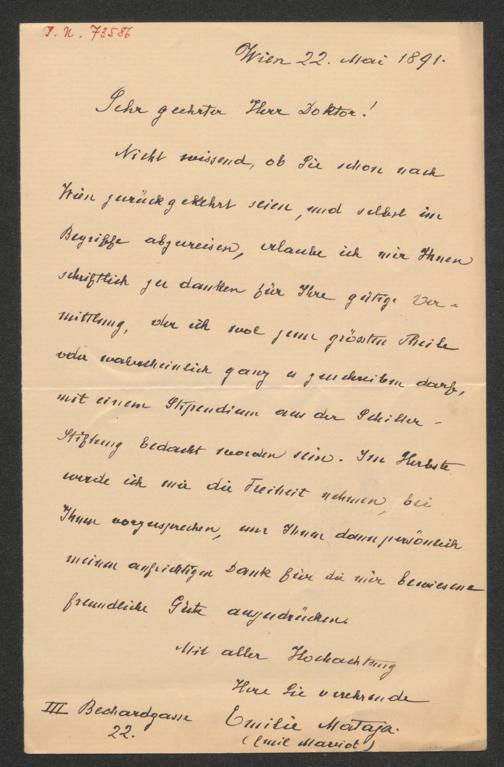 I. N. 73586
Wien 22. Mai 1891.
Sehr geehrter Herr Doktor!
Nicht wissend, ob Sie schon nach
Wien zurückgekehrt seien, und selbst im
Begriffe abzureisen, erlaube ich mir Ihnen
schriftlich zu danken für Ihre gütige Ver-
mittlung, der ich wol zum grössten Theile
oder wahrscheinlich ganz zuzuschreiben darf,
mit einem Stipendium aus der Schiller-
Stiftung bedacht worden sein. Im Herbste
werde ich mir die Freiheit nehmen, bei
Ihnen vorzusprechen, um Ihnen dann persönlich
meinen aufrichtigen Dank für die mir bewiesene
freundliche Güte auszudrücken.
Mit aller Hochachtung
Ihre Sie verehrende
Emilie Mataja.
(Emil Marriot)
III Bechardgasse
22.